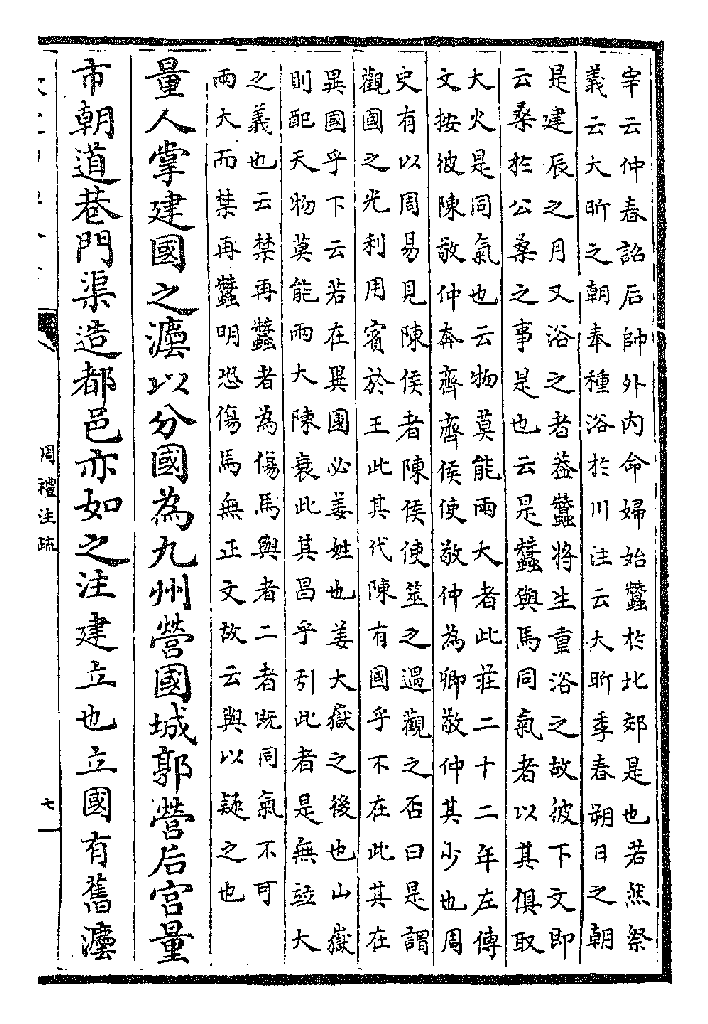 宰云仲春詔后帥外内命婦始蠶於北郊是也若然祭
義云大昕之朝奉種浴於川注云大昕季春朔日之朝
是建辰之月又浴之者葢蠶將生重浴之故彼下文即
云桑於公桑之事是也云是蠶與馬同氣者以其俱取
大火是同氣也云物莫能兩大者此莊二十二年左傳
文按彼陳敬仲奔齊齊侯使敬仲為卿敬仲其少也周
史有以周易見陳侯者陳侯使筮之遇觀之否曰是謂
觀國之光利用賓於王此其代陳有國乎不在此其在
異國乎下云若在異國必姜姓也姜大嶽之後也山嶽
則配天物莫能兩大陳衰此其昌乎引此者是無竝大
之義也云禁再蠶者為傷馬與者二者既同氣不可
兩大而禁再蠶明恐傷馬無正文故云與以疑之也
量人掌建國之灋以分國為九州營國城郭營后宫量
市朝道巷門渠造都邑亦如之注建立也立國有舊灋
周禮注疏
七